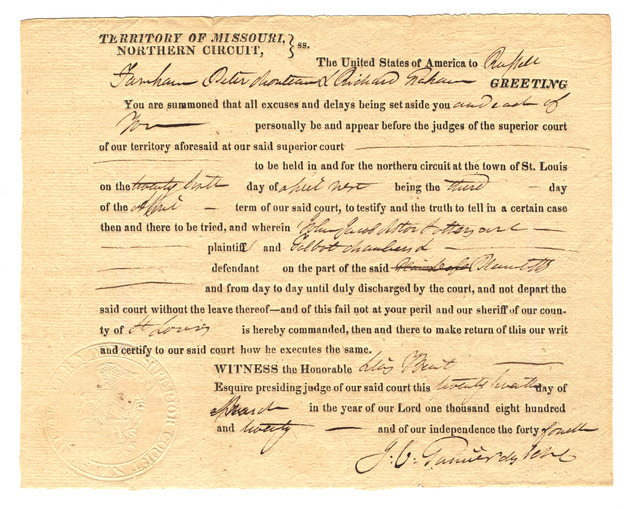 TERRITORY OF MISSOURI,
NORTHERN CIRCUIT, } ss.
The United States of America to Russell
Farnham Peter Chouteau & Richard Graham GREETING
You are summoned that all excuses and delays being set aside you and each of
You personally be and appear before the judges of the superior court
of our territory aforesaid at our said superior court
to be held in and for the northern circuit at the town of St. Louis
on the twenty sixth day of april next being the third day
of the April term of our said court, to testify and the truth to tell in a certain case
then and there to be tried, and wherein John Jacob Astor & others are
plaintiff and Talbot Chambers
defendant on the part of the said Plaintiff
and from day to day until duly discharged by the court, and not depart the
said court without the leave thereof—and of this fail not at your peril and our sheriff of our coun-
ty of St Louis is hereby commanded, then and there to make return of this our writ
and certify to our said court how he executes the same.
WITNESS the Honorable Silas Bent
Esquire presiding judge of our said court this twenty day of
March in the year of our Lord one thousand eight hundred
and twenty and of our independence the forty fourth
SUPERIOR COURT